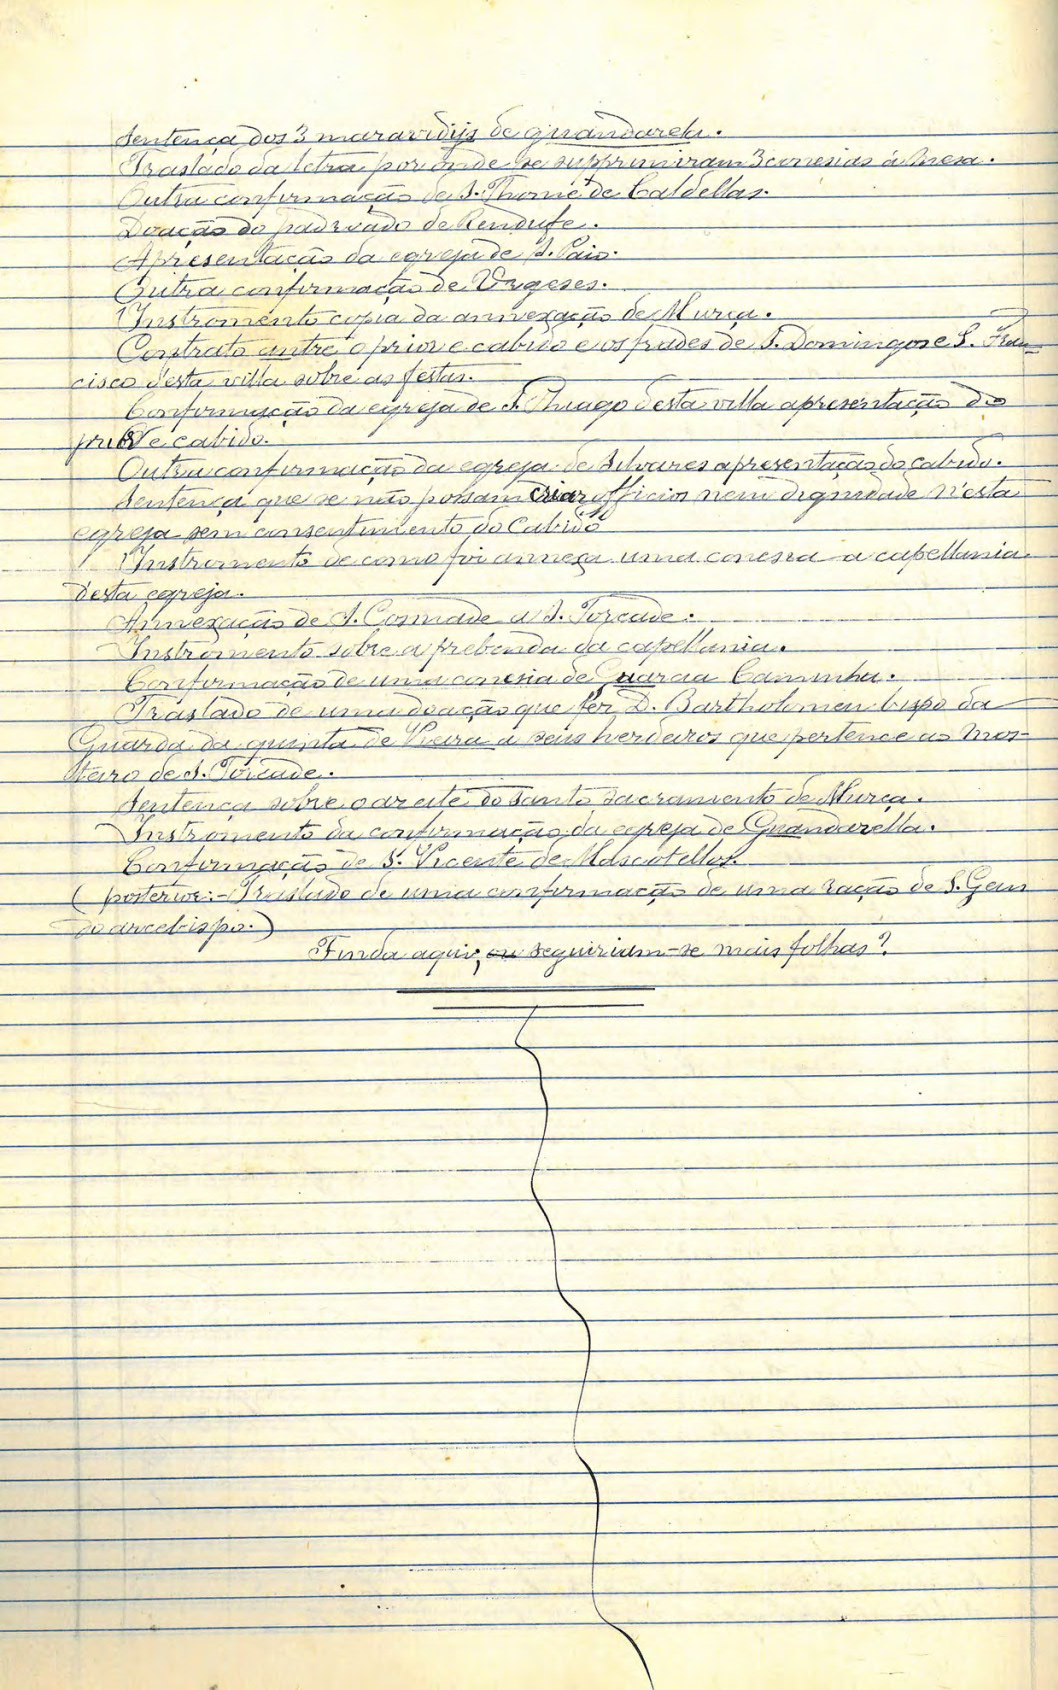 Sentença dos 3 maravidijs de guandarela.
Traslado da letra por onde se supprimiram 3 conesias á mesa.
Outra confirmação de S. Thomé de Caldellas.
Doação do padroado de Rendufe.
Apresentação da egreja de S. Paio.
Outra confirmação de Urgeses.
Instromento copia da annexação de Murça.
Contrato antre o prior e cabido e os frades de S. Domingos e S. Fran-
cisco d'esta villa sobre as festas.
Confirmação da egreja de S. Thiago desta villa apresentação do
prior e cabido.
Outra confirmação da egreja de Silvares apresentação do cabido.
Sentença que se não possam criar officios nem dignidade n'esta
egreja sem consentimento do Cabido
Instromento de como foi annexa uma conesia a capellania
d'esta egreja.
Annexação de S. Cosmade a S. Torcade.
Instromento sobre a prebenda da capellania.
Confirmação de uma conesia de Guarcia Caminha.
Traslado de uma doação que fez D. Bartholomeu bispo da
Guarda da quinta de Vieira a seus herdeiros que pertence ao mos-
teiro de S. Torcade.
Sentença sobre o azeite do Santo Sacramento de Murça.
Instromento da confirmação da egreja de Guandarella.
Confirmação de S. Vicente de Mascotellos.
( posterior:- Traslado de uma confirmação de uma ração de S. Gens
do arcebispo.)
Finda aqui, ou seguiriam-se mais folhas?